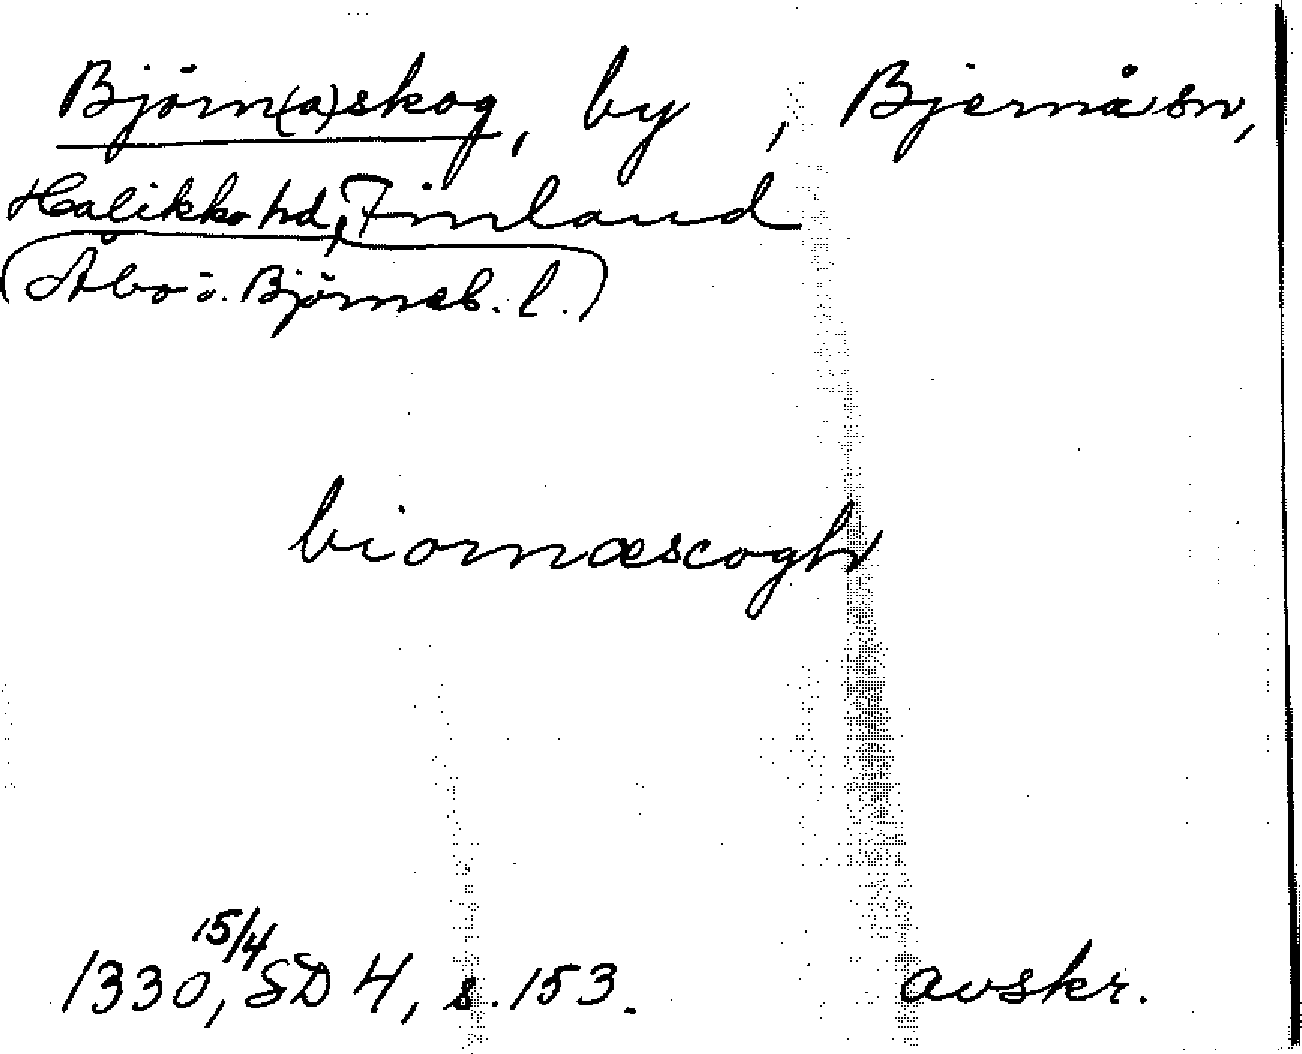 Björn(a)skog, by, Bjernå sn,
Halikko hd, Finland
(Åbo o. Björneb. l.)
biornæscogh
1330, 15/4 SD 4, s. 153. avskr.